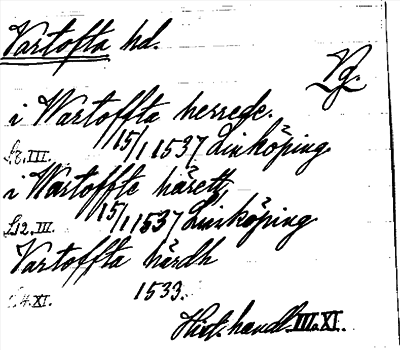 Vartofta hd.
Vg.
i Wartoffta herrede.
15/1 1537 Linköping
L2.III.
i Wartoffte härett,
15/1 1537 Linköping
L12.III.
Vartoffta härdh
1533.
4.XI.
Hist. handl. III.XI.